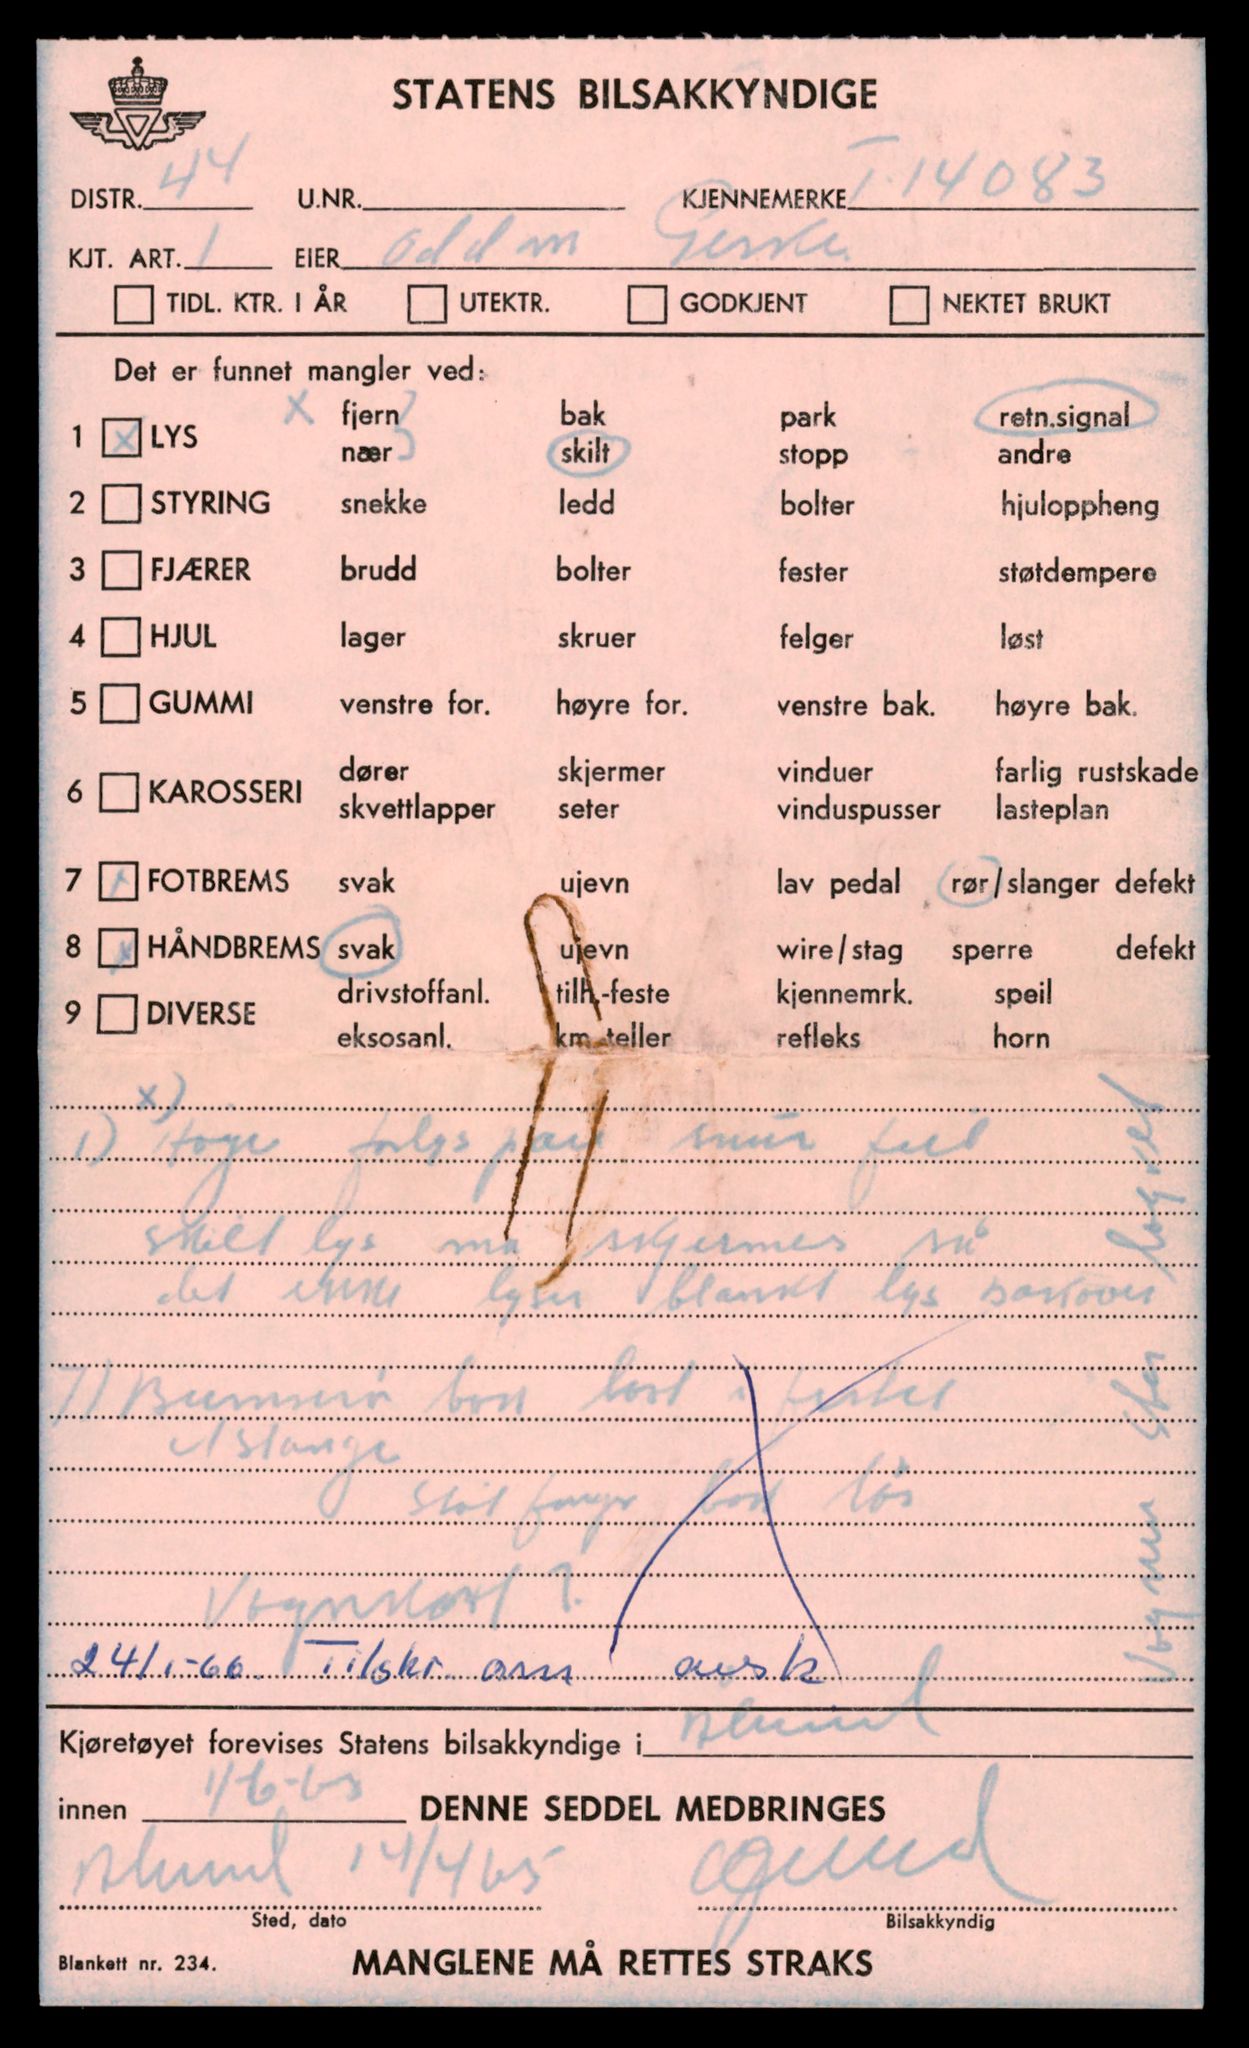 STATENS BILSAKKYNDIGE
DISTR. 44 U.NR. KJENNEMERKE T-14083
KJT. ART. 1 EIER Oddm
TIDL. KTR. I ÅR UTEKTR. GODKJENT NEKTET BRUKT
Det er funnet mangler ved:
x fjern bak park retn.signal
1 x LYS
nær skilt stopp andre
2 STYRING snekke ledd bolter hjuloppheng
3 FJÆRER brudd bolter fester støtdempere
4 HJUL lager skruer felger løst
5 GUMMI venstre for. høyre for. venstre bak. høyre bak.
dører skjermer vinduer farlig rustskade
6 KAROSSERI
skvettlapper seter vinduspusser lasteplan
7 x FOTBREMS svak ujevn lav pedal rør/slanger defekt
8 x HÅNDBREMS svak ujevn wire/stag sperre defekt
drivstoffanl. tilh.-feste kjennemrk. speil
9 DIVERSE
eksosanl. km.teller refleks horn
x)
1) Høyre feil
skilt lys må skjermes så
det ikke lyser blankt lys bakover
7) Bremserør bak løst i festet
v/ stange
Støtfanger bak løs
Vognkort ?
24/1-66. Tilskr. om avsk
Kjøretøyet forevises Statens bilsakkyndige i Ålesund
innen 1/6-65 DENNE SEDDEL MEDBRINGES
Ålesund 14/4 65
Sted, dato Bilsakkyndig
Blankett nr. 234. MANGLENE MÅ RETTES STRAKS